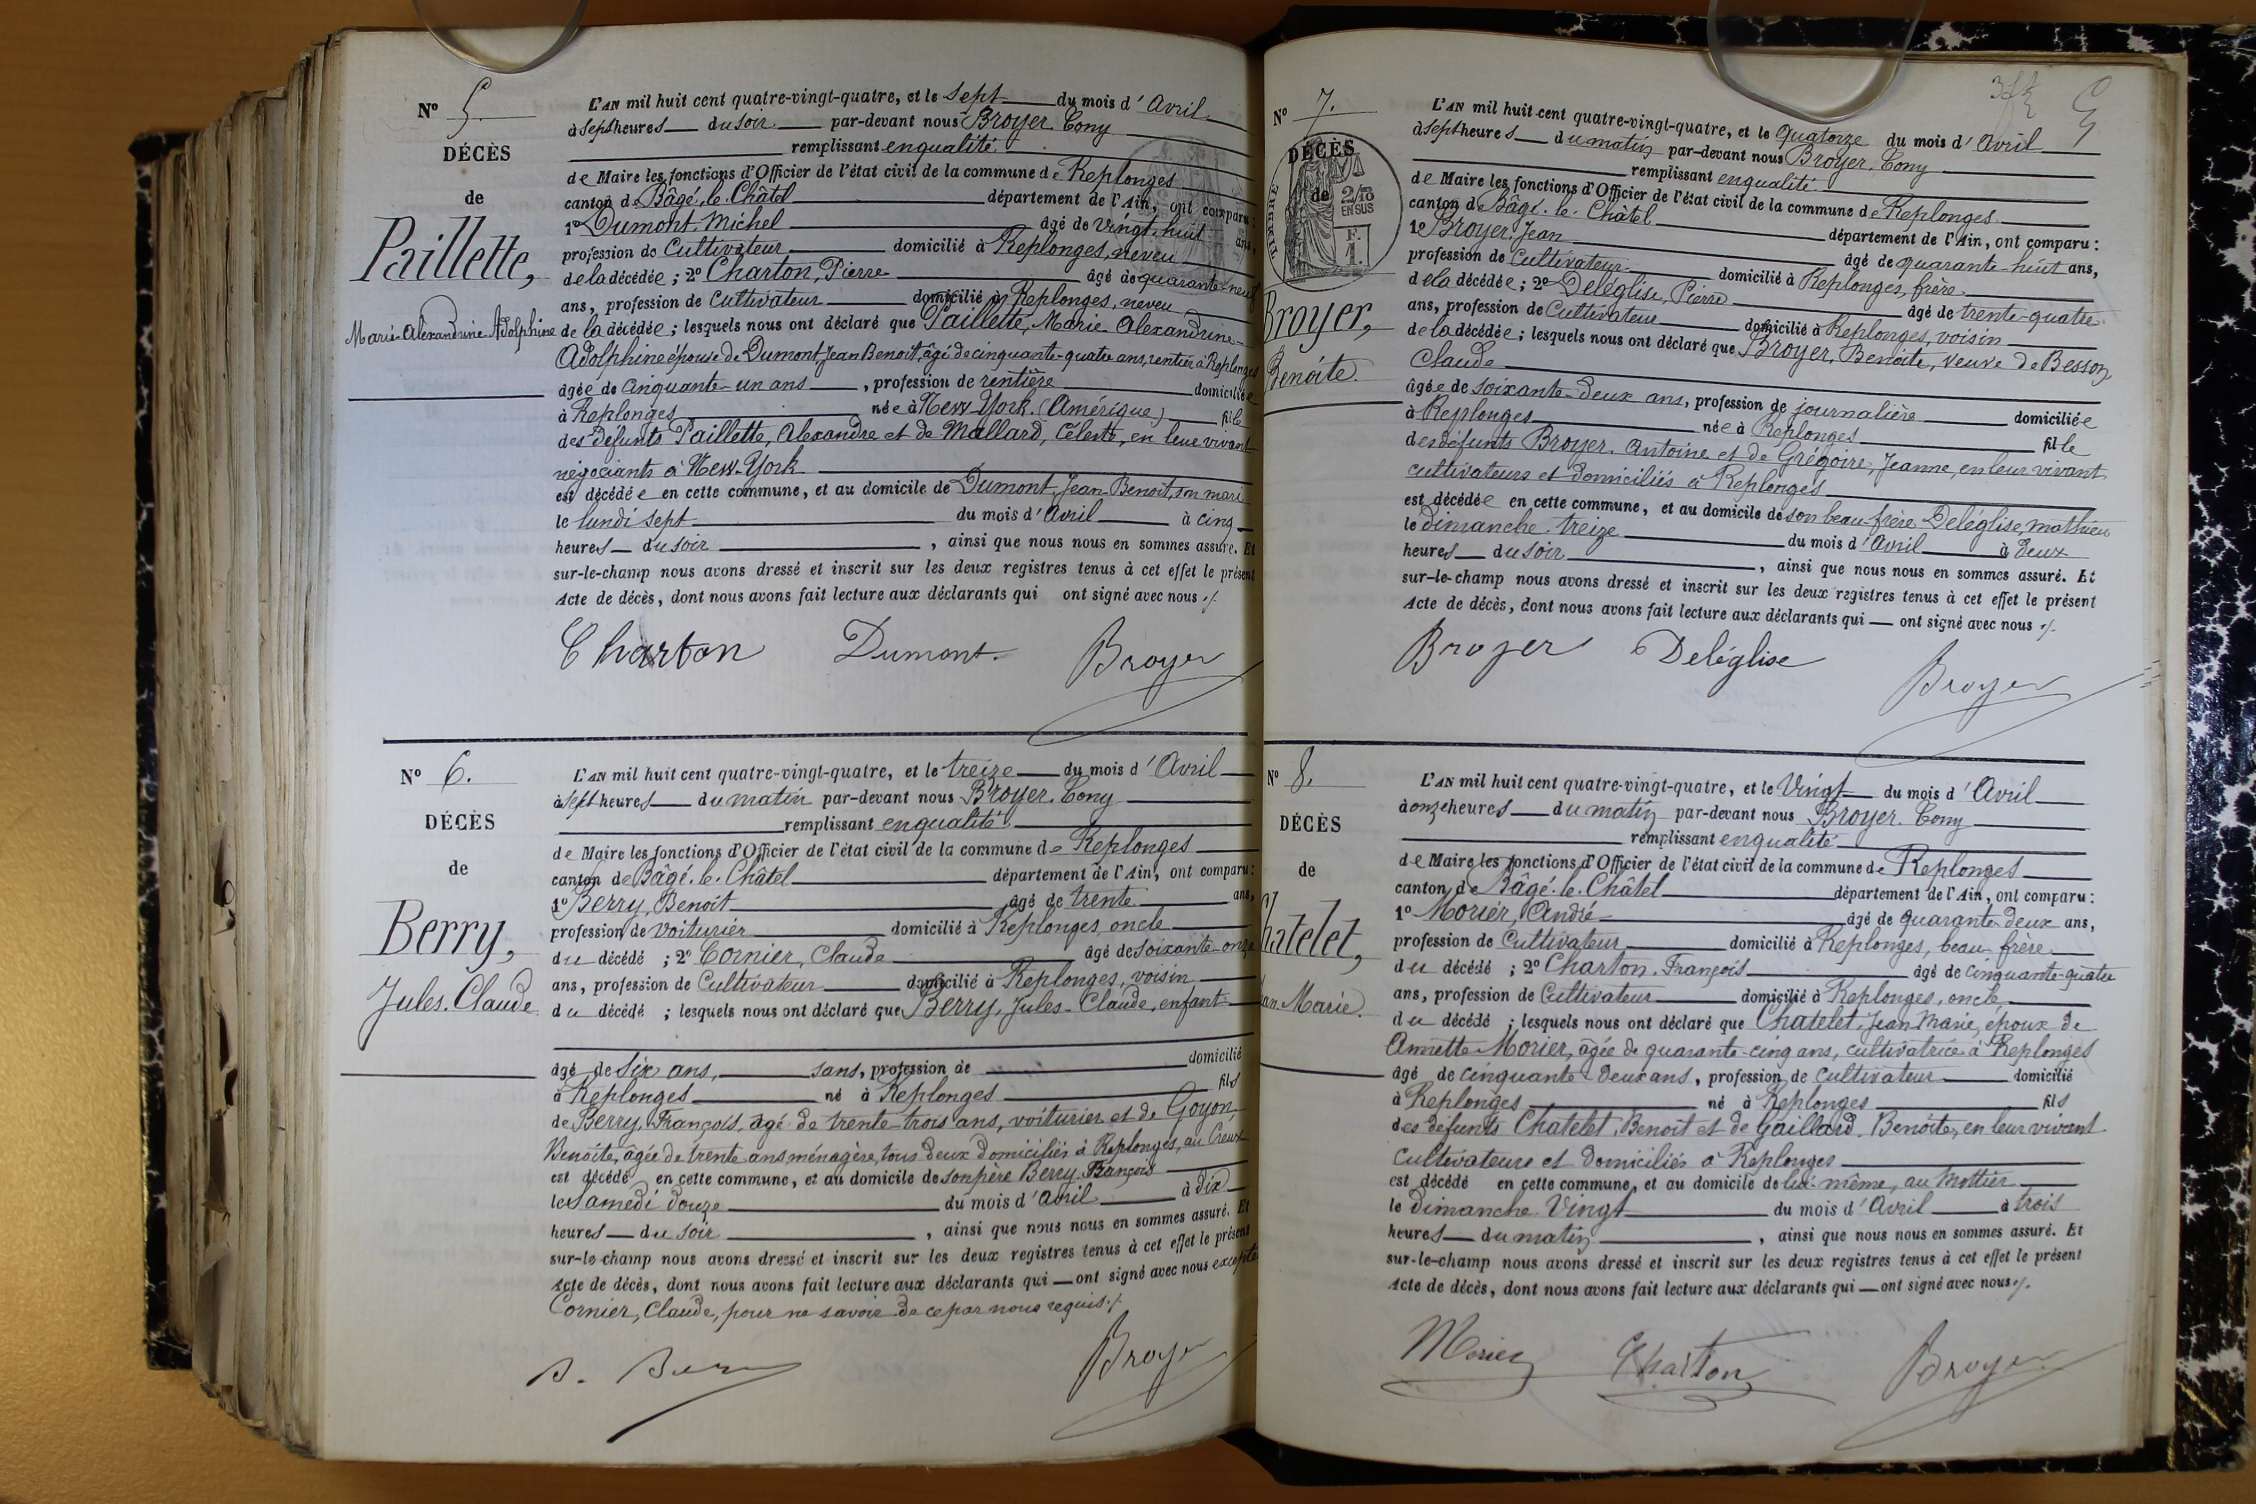 Nº 5.
DÉCÈS
de
Paillette,
Marie-Alexandrine Adolphine
L'AN mil huit cent quatre-vingt-quatre, et le sept du mois d'Avril
à sept heures du soir par-devant nous Broyer Tony
remplissant en qualité
de Maire les fonctions d'Officier de l'état civil de la commune de Replonges
canton de Bâgé-le-Châtel département de l'Ain, ont comparu:
1º Dumont Michel âgé de vingt-huit ans,
profession de Cultivateur domicilié à Replonges, neveu
de la décédée; 2º Charton, Pierre âgé de quarante-neuf
ans, profession de Cultivateur domicilié à Replonges, neveu
de la décédée; lesquels nous ont déclaré que Paillette, Marie Alexandrine
Adolphine épouse de Dumont, Jean Benoit, âgé de cinquante-quatre ans, rentier à Replonges
âgée de cinquante-un ans, profession de rentière domiciliée
à Replonges née à New York (Amérique) fille
des défunts Paillette, Alexandre et de Mallard, Céleste, en leur vivant
négociants à New-York
est décédée en cette commune, et au domicile de Dumont, Jean-Benoit, son mari
le lundi sept du mois d'Avril à cinq
heures du soir, ainsi que nous nous en sommes assuré. Et
sur-le-champ nous avons dressé et inscrit sur les deux registres tenus à cet effet le présent
Acte de décès, dont nous avons fait lecture aux déclarants qui ont signé avec nous ./.
Charton Dumont. Broyer
Nº 6.
DÉCÈS
de
Berry,
Jules-Claude
L'AN mil huit cent quatre-vingt-quatre, et le treize du mois d'Avril
à sept heures du matin par-devant nous Broyer Tony
remplissant en qualité
de Maire les fonctions d'Officier de l'état civil de la commune de Replonges
canton de Bâgé-le-Châtel département de l'Ain, ont comparu:
1º Berry, Benoit âgé de trente ans,
profession de voiturier domicilié à Replonges, oncle
du décédé; 2º Cornier, Claude âgé de soixante-onze
ans, profession de Cultivateur domicilié à Replonges, voisin
du décédé; lesquels nous ont déclaré que Berry, Jules-Claude, enfant
âgé de six ans, sans, profession de domicilié
à Replonges né à Replonges fils
de Berry, François, âgé de trente-trois ans, voiturier et de Goyon
Benoite, âgée de trente ans ménagère, tous deux domiciliés à Replonges, au Creux
est décédé en cette commune, et au domicile de son père Berry François
le Samedi douze du mois d'Avril à dix
heures du soir, ainsi que nous nous en sommes assuré. Et
sur-le-champ nous avons dressé et inscrit sur les deux registres tenus à cet effet le présent
Acte de décès, dont nous avons fait lecture aux déclarants qui ont signé avec nous excepté
Cornier, Claude, pour ne savoir de ce par nous requis ./.
B. Berry Broyer
Nº 7.
DÉCÈS
de
2/10
EN SUS
F.
1.
Broyer,
Benoite.
L'AN mil huit cent quatre-vingt-quatre, et le quatorze du mois d'Avril
à sept heures du matin par-devant nous Broyer, Tony
remplissant en qualité
de Maire les fonctions d'Officier de l'état civil de la commune de Replonges
canton de Bâgé-le-Châtel département de l'Ain, ont comparu:
1º Broyer, Jean âgé de quarante-huit ans,
profession de Cultivateur domicilié à Replonges, frère
de la décédée; 2º Deléglise, Pierre âgé de trente-quatre
ans, profession de Cultivateur domicilié à Replonges, voisin
de la décédée; lesquels nous ont déclaré que Broyer, Benoite, veuve de Besson
Claude
âgée de soixante-deux ans, profession de journalière domiciliée
à Replonges née à Replonges fille
des défunts Broyer, Antoine et de Grégoire, Jeanne, en leur vivant
cultivateurs et domiciliés à Replonges
est décédée en cette commune, et au domicile de son beau-frère Deléglise Mathieu
le dimanche treize du mois d'Avril à deux
heures du soir, ainsi que nous nous en sommes assuré. Et
sur-le-champ nous avons dressé et inscrit sur les deux registres tenus à cet effet le présent
Acte de décès, dont nous avons fait lecture aux déclarants qui ont signé avec nous ./.
Broyer Deléglise Broyer
Nº 8.
DÉCÈS
de
Chatelet,
Jean Marie.
L'AN mil huit cent quatre-vingt-quatre, et le Vingt du mois d'Avril
à onze heures du matin par-devant nous Broyer Tony
remplissant en qualité
de Maire les fonctions d'Officier de l'état civil de la commune de Replonges
canton de Bâgé-le-Châtel département de l'Ain, ont comparu:
1º Morier, André âgé de quarante-deux ans,
profession de Cultivateur domicilié à Replonges, beau-frère
du décédé; 2º Charton, François âgé de cinquante-quatre
ans, profession de Cultivateur domicilié à Replonges, oncle
du décédé; lesquels nous ont déclaré que Chatelet, Jean Marie, époux de
Annette Morier, âgée de quarante-cinq ans, cultivatrice à Replonges
âgé de cinquante-deux ans, profession de cultivateur domicilié
à Replonges né à Replonges fils
des défunts Chatelet, Benoit et de Gaillard, Benoite, en leur vivant
Cultivateurs et domiciliés à Replonges
est décédé en cette commune, et au domicile de lui-même, au Mottier
le dimanche Vingt du mois d'Avril à trois
heures du matin, ainsi que nous nous en sommes assuré. Et
sur-le-champ nous avons dressé et inscrit sur les deux registres tenus à cet effet le présent
Acte de décès, dont nous avons fait lecture aux déclarants qui ont signé avec nous ./.
Morier Charton Broyer